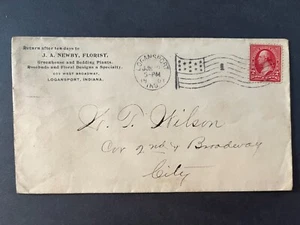 Return after ten days to
J. A. NEWBY, FLORIST,
Greenhouse and Bedding Plants.
Rosebuds and Floral Designs a Specialty.
WEST BROADWAY,
LOGANSPORT, INDIANA.
LOGANSPORT
5-PM
IND.
W. T. Wilson
Cor 2nd & Broadway
City